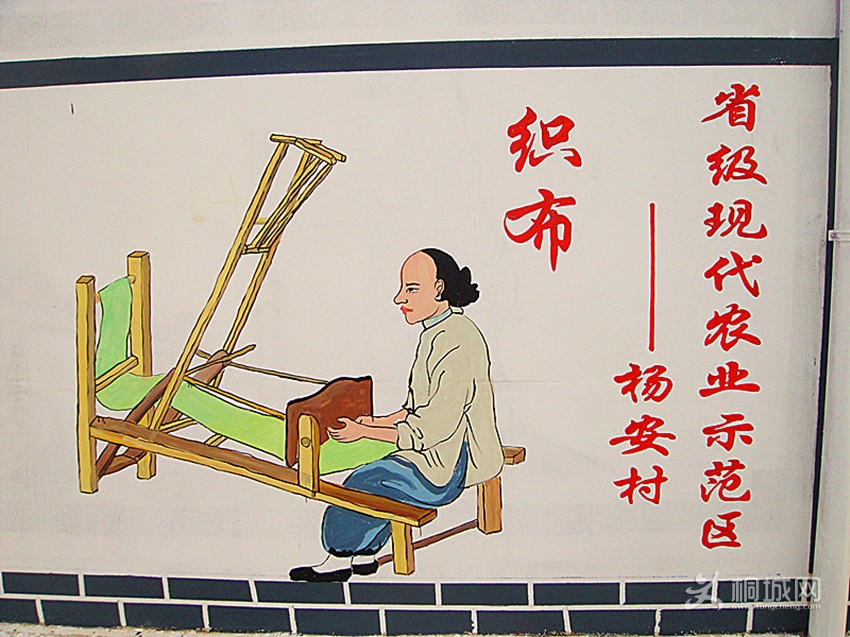 省级现代农业示范区
——杨安村
织布
桐城网
www.tongcheng.com